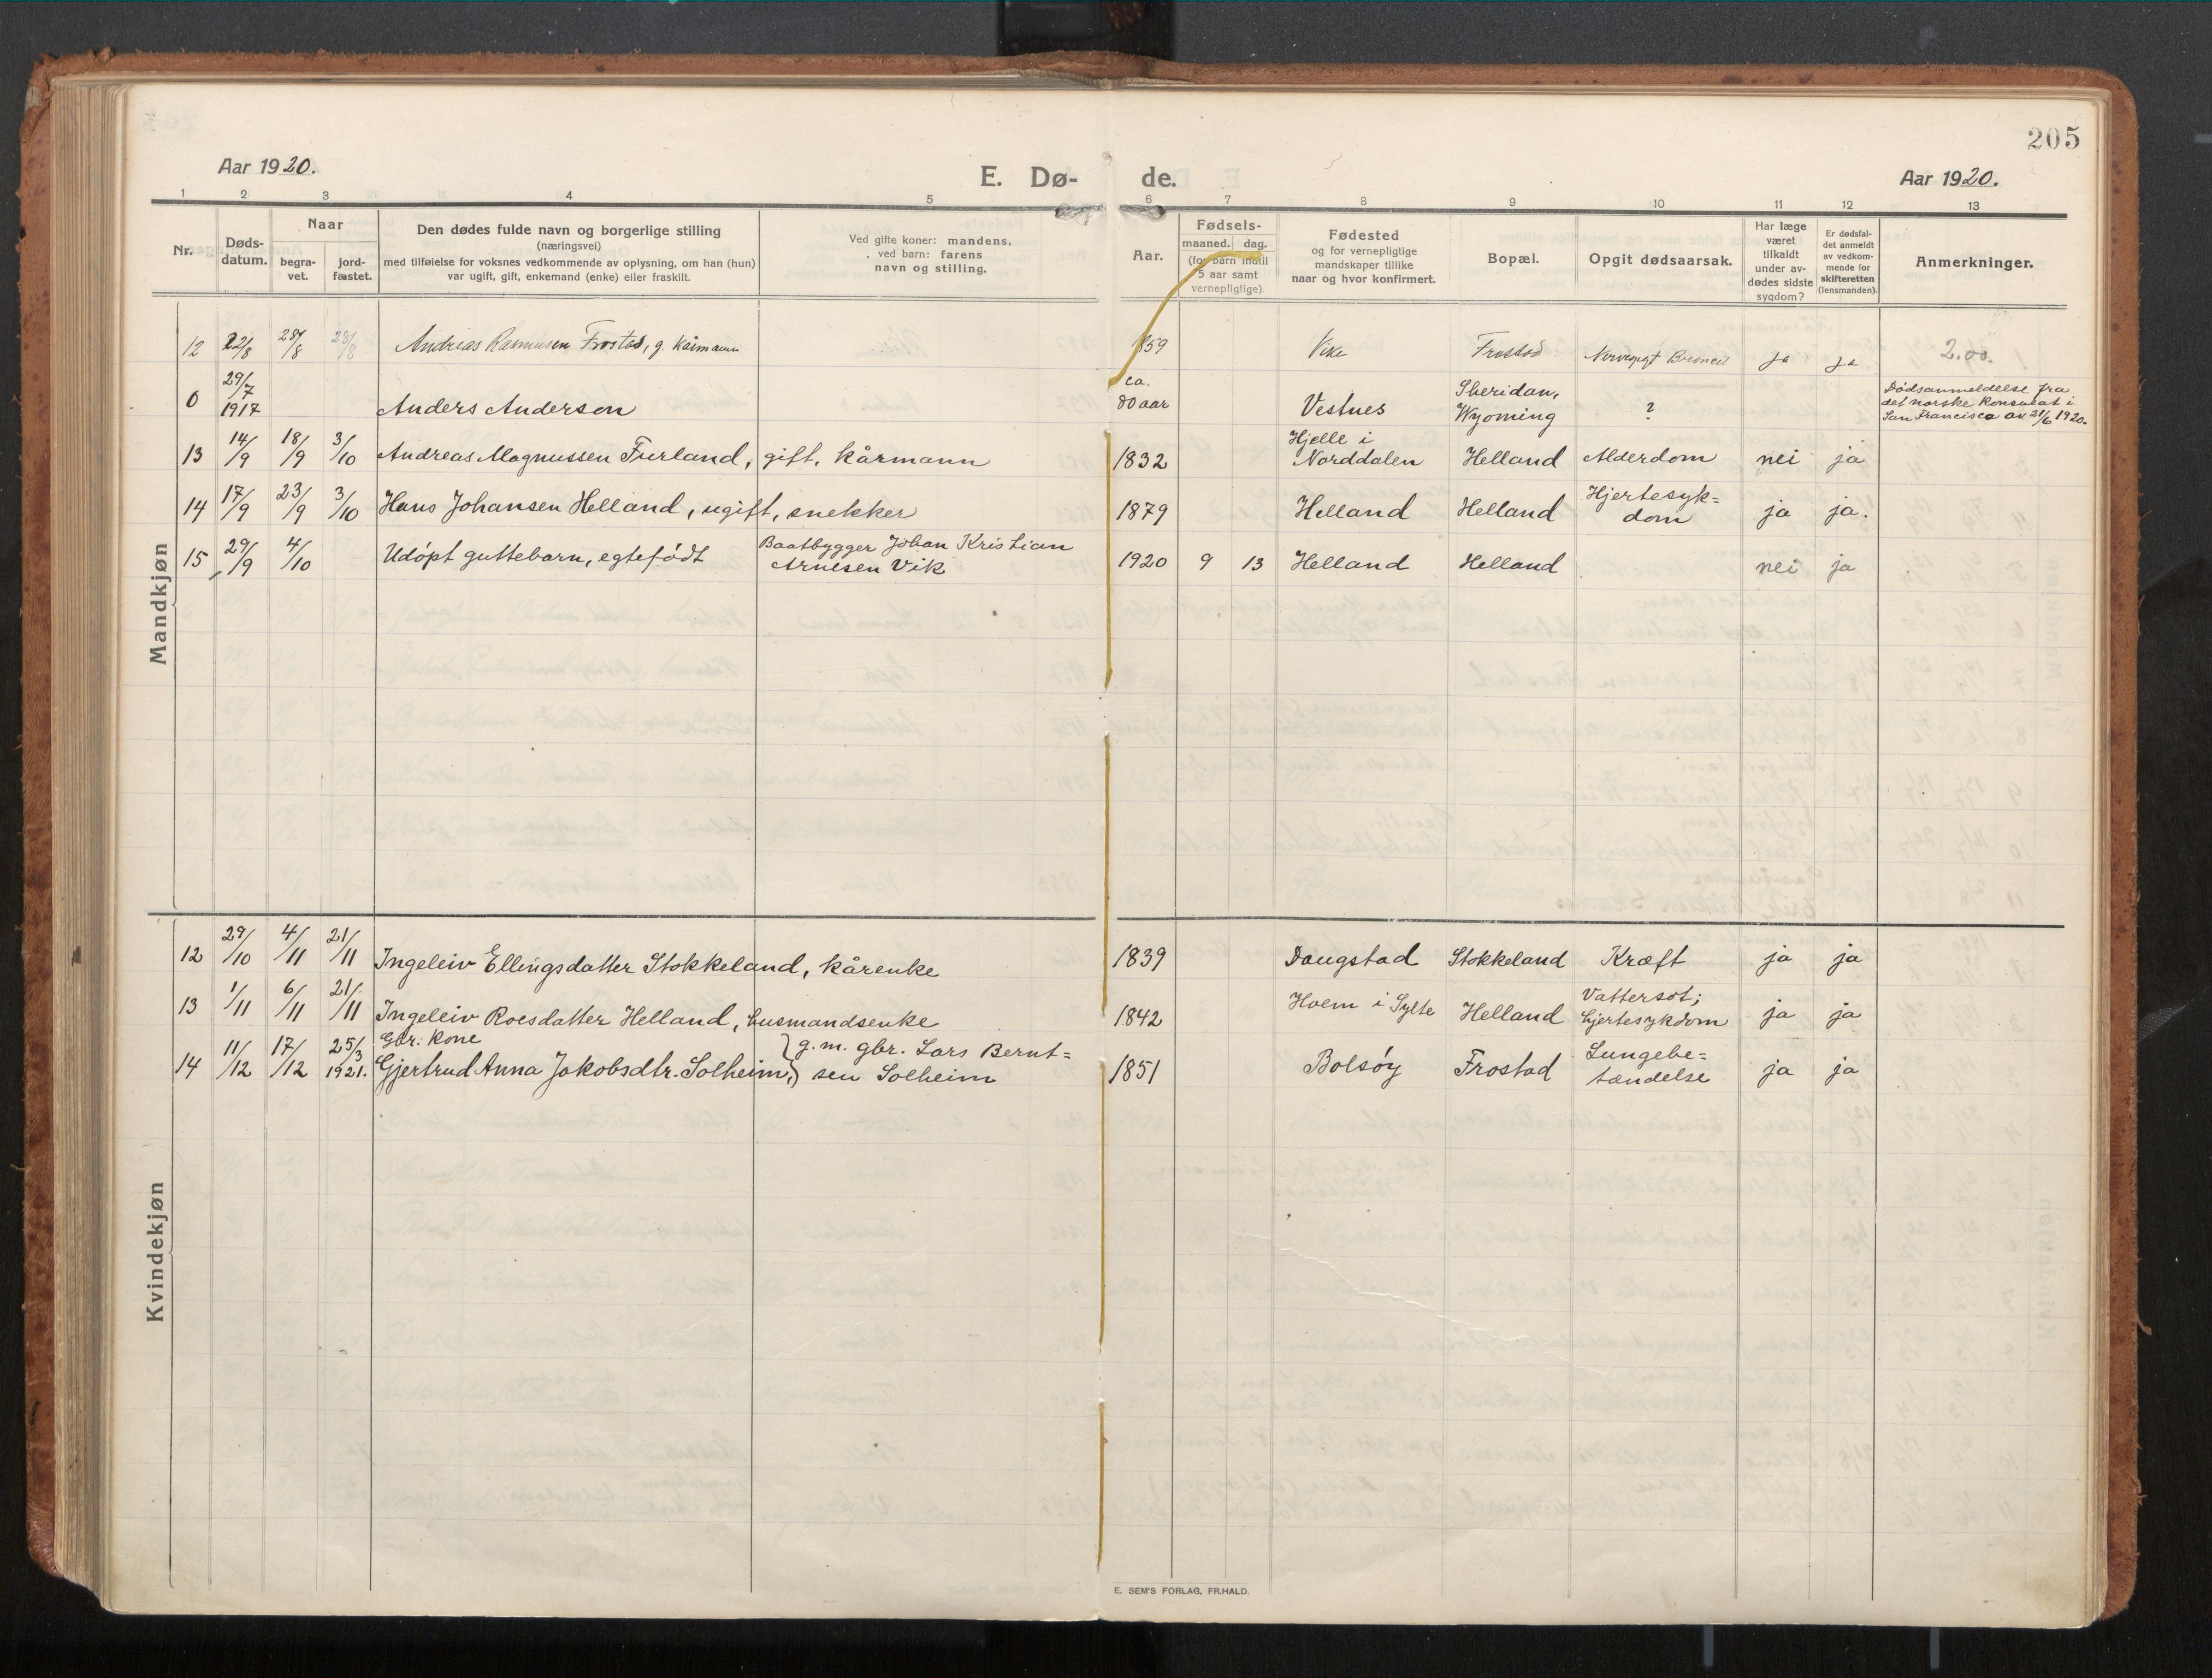 205
Aar 1920.
E. Dø-
de.
Aar 1920.
1 2 3 4 5 6 7 8 9 10 11 12 13
Nr.
Døds-
datum.
Naar
begra-
vet.
jord-
fæstet.
Den dødes fulde navn og borgerlige stilling
(næringsvei)
med tilføielse for voksnes vedkommende av oplysning, om han (hun)
var ugift, gift, enkemand (enke) eller fraskilt.
Ved gifte koner: mandens.
ved barn: farens
navn og stilling.
Aar.
Fødsels-
maaned. dag.
(for barn indtil
5 aar samt
vernepligtige)
Fødested
og for vernepligtige
mandskaper tillike
naar og hvor konfirmert.
Bopæl.
Opgit dødsaarsak.
Har læge
været
tilkaldt
under av-
dødes sidste
sygdom?
Er dødsfal-
det anmeldt
av vedkom-
mende for
skifteretten
(lensmanden).
Anmerkninger.
Mandkjøn
12 22/8 28/8 28/8 Andreas Rasmussen Frostad, g. kårmann 1859 Vike Frostad ja ja 2.00.
0 29/7 1917 Anders Anderson ca. 80 aar Vestnes Sheridan, Wyoming ? Dødsanmeldelse fra
det norske konsulat i
San Francisco av 21/6 1920.
13 14/9 18/9 3/10 Andreas Magnussen Furland, gift, kårmann 1832 Hjelle i Norddalen Helland Alderdom nei ja
14 17/9 23/9 3/10 Hans Johansen Helland, ugift, snekker 1879 Helland Helland Hjertesyk=
dom ja ja.
15 29/9 4/10 Udøpt guttebarn, egtefødt Baatbygger Johan Kristian
Arnesen Vik 1920 9 13 Helland Helland nei ja
Kvindekjøn
12 29/10 4/11 21/11 Ingeleiv Ellingsdatter Stokkeland, kårenke 1839 Daugstad Stokkeland Kræft ja ja
13 1/11 6/11 21/11 Ingeleiv Roesdatter Helland, husmandsenke 1842 Hoem i Sylte Helland Vattersot;
hjertesykdom ja ja
14 11/12 17/12 25/3 1921. Gbr. kone
Gjertrud Anna Jakobsdtr. Solheim, g. m. gbr. Lars Bernt=
sen Solheim 1851 Bolsøy Frostad Lungebe=
tændelse ja ja
E. SEM'S FORLAG, FR.HALD.